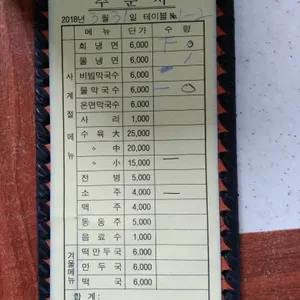 주 문 서
2018년 3월 31일 테이블 № 1-2
메 뉴 단 가 수 량
사계절 메뉴
회 냉 면 6,000 F
물 냉 면 6,000
비빔막국수 6,000
물막국수 6,000
온면막국수 6,000
사 리 1,000
수 육 大 25,000
〃 中 20,000
〃 小 15,000 一
전 병 5,000
소 주 4,000 一
맥 주 4,000
동 동 주 5,000
음 료 수 1,000
겨울메뉴
떡만두국 6,000
만 두 국 6,000
떡 국 6,000
합 계 :